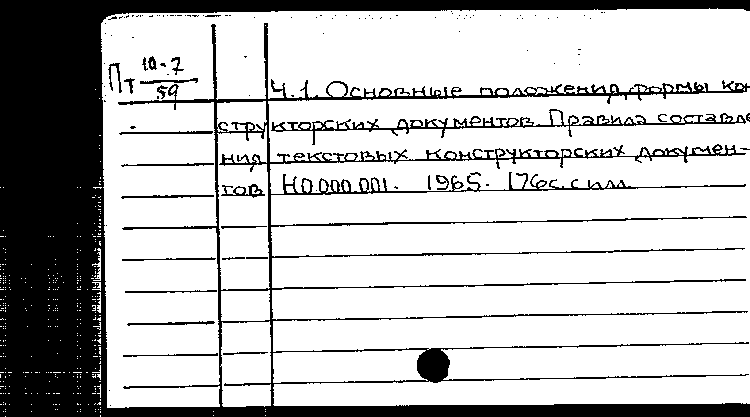 Пт 10-7
59
Ч.1. Основные положения, формы кон
структорских документов. Правила составле
ния текстовых конструкторских докумен-
тов Н0.000.001. 1965. 176с. с илл